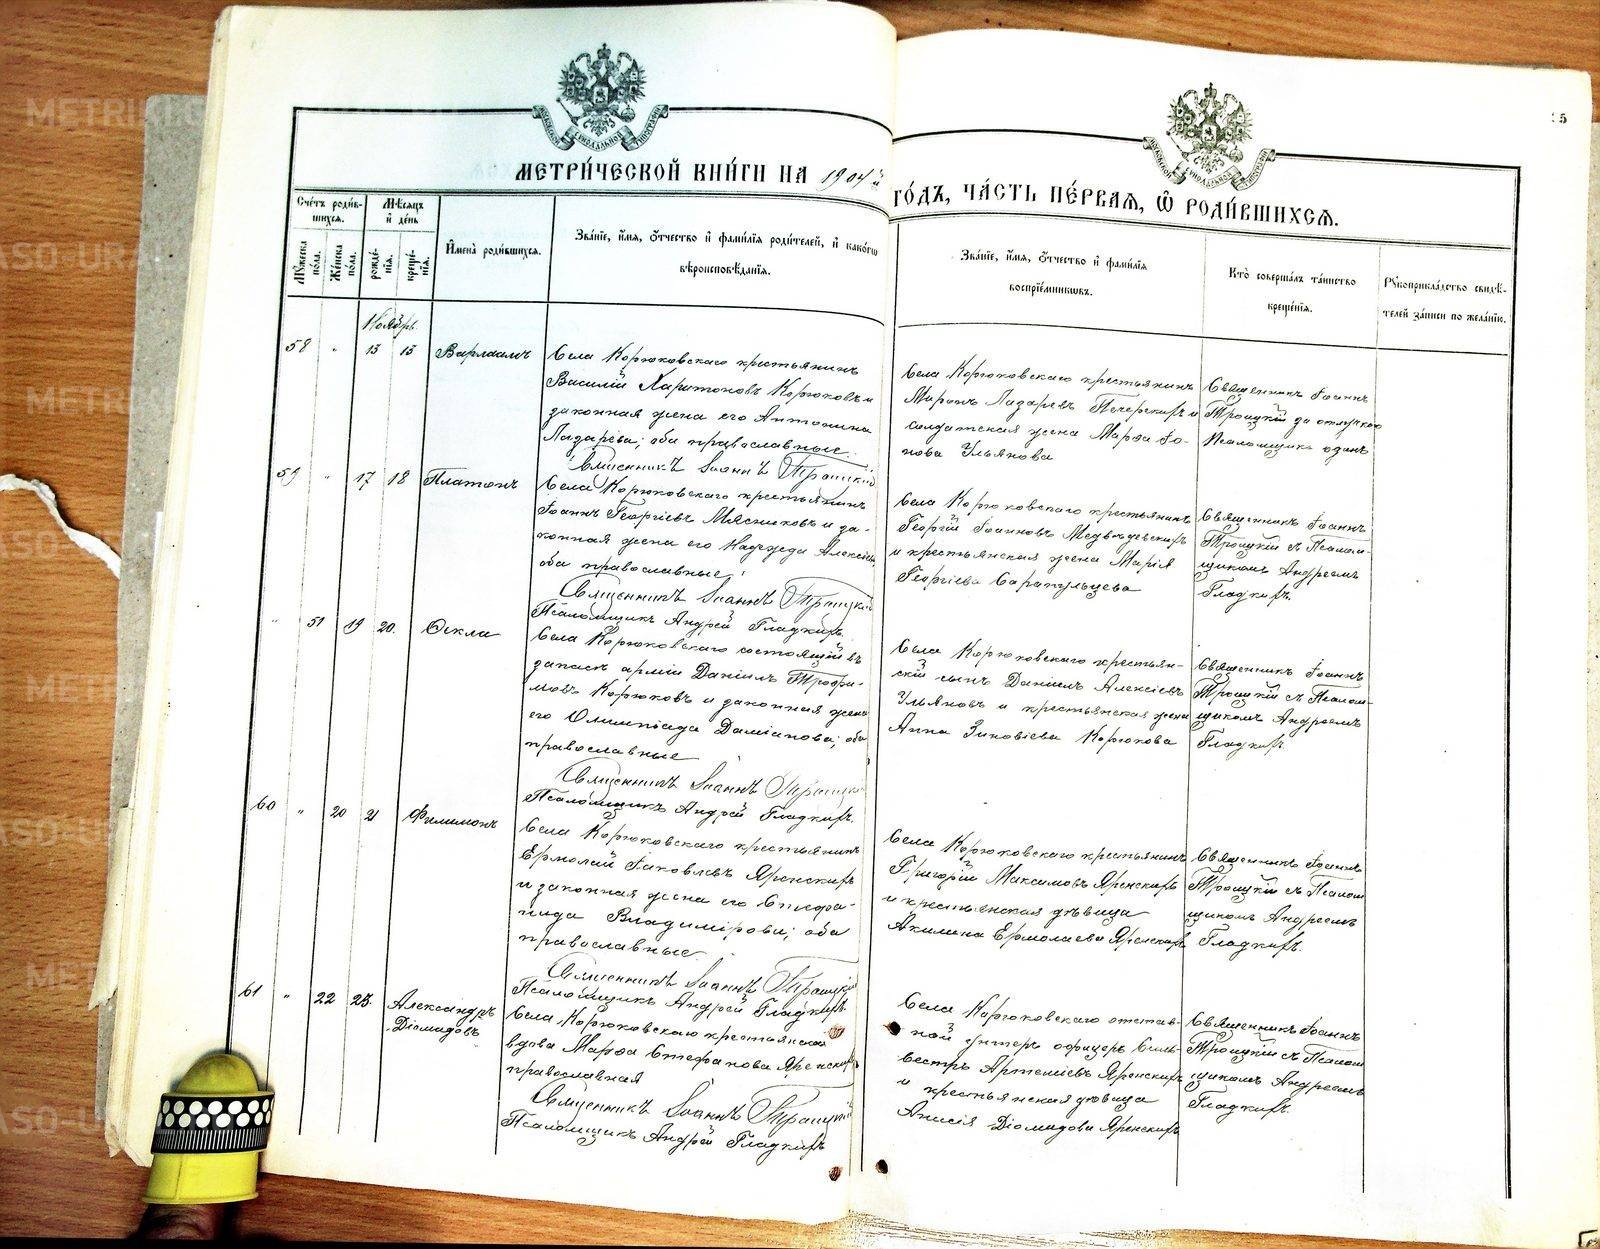 МЕТРИ́ЧЕСКОЙ КНИ́ГИ НА 1904й
ГО́ДЪ, ЧА́СТЬ ПЕ́РВАЯ, Ѡ РОДИ́ВШИХСЯ.
Сче́тъ роди́в-
шихся.
Мѣсяцъ
и де́нь
Мꙋжеска по́ла.
Же́нска по́ла.
рожде́-
нія.
креще́-
нія.
И̓мена̀ роди́вшихся.
Зва́ніе, и́мя, о́тчество и фами́лія роди́телей, и како́гѡ
вѣроисповѣ́данія.
Зва́ніе, и́мя, о́тчество и фами́лія
воспріе́мниковъ.
Кто̀ соверша́лъ та́инство
креще́нія.
Рꙋкоприкла́дство свидѣ́-
телей за́писи по жела́нію.
Ноябрь
58 " 13 13 Варлаамъ
Села Корюковскаго крестьянинъ
Василій Харитоновъ Корюковъ и
законная жена его Антонина
Лазарева; оба православные.
Священникъ Іоаннъ Троицкій
Села Корюковскаго крестьянинъ
Миронъ Лазаревъ Печерскихъ и
солдатская жена Марѳа Іо-
нова Ульянова
Священникъ Іоаннъ
Троицкій за отлучкою
Псаломщика одинъ
59 " 17 18 Платонъ
Села Корюковскаго крестьянинъ
Іоаннъ Георгіевъ Мясниковъ и за-
конная жена его Надежда Алексіева
оба православные;
Священникъ Іоаннъ Троицкій
Псаломщикъ Андрей Гладкихъ.
Села Корюковскаго крестьянинъ
Георгій Іоанновъ Медвѣдевскихъ
и крестьянская жена Марія
Георгіева Сарапульцева
Священникъ Іоаннъ
Троицкій съ Псалом-
щикомъ Андреемъ
Гладкихъ.
" 51 19 20. Ѳекла
Села Корюковскаго состоящій въ
запасѣ арміи Даніилъ Трофи-
мовъ Корюковъ и законная жена
его Олимпіада Даміанова; оба
православные
Священникъ Іоаннъ Троицкій
Псаломщикъ Андрей Гладкихъ.
Села Корюковскаго крестьян-
скій сынъ Даніилъ Алексіевъ
Ульяновъ и крестьянская жена
Анна Зиновіева Корюкова
Священникъ Іоаннъ
Троицкій съ Псалом-
щикомъ Андреемъ
Гладкихъ.
60 " 20 21 Филимонъ
Села Корюковскаго крестьянинъ
Ермолай Іаковлевъ Яренскихъ
и законная жена его Стефа-
нида Владимірова; оба
православные
Священникъ Іоаннъ Троицкій
Псаломщикъ Андрей Гладкихъ
Села Корюковскаго крестьянинъ
Григорій Максимовъ Яренскихъ
и крестьянская дѣвица
Акилина Ермолаева Яренскихъ
Священникъ Іоаннъ
Троицкій съ Псалом
щикомъ Андреемъ
Гладкихъ.
61 " 22 23. Александръ
Діомидовъ
Села Корюковскаго крестьянская
вдова Марѳа Стефанова Яренскихъ
православная
Священникъ Іоаннъ Троицкій
Псаломщикъ Андрей Гладкихъ
Села Корюковскаго отстав-
ной унтеръ офицеръ Силь-
вестръ Артеміевъ Яренскихъ
и крестьянская дѣвица
Анисія Діомидова Яренскихъ
Священникъ Іоаннъ
Троицкій съ Псалом
щикомъ Андреемъ
Гладкихъ.